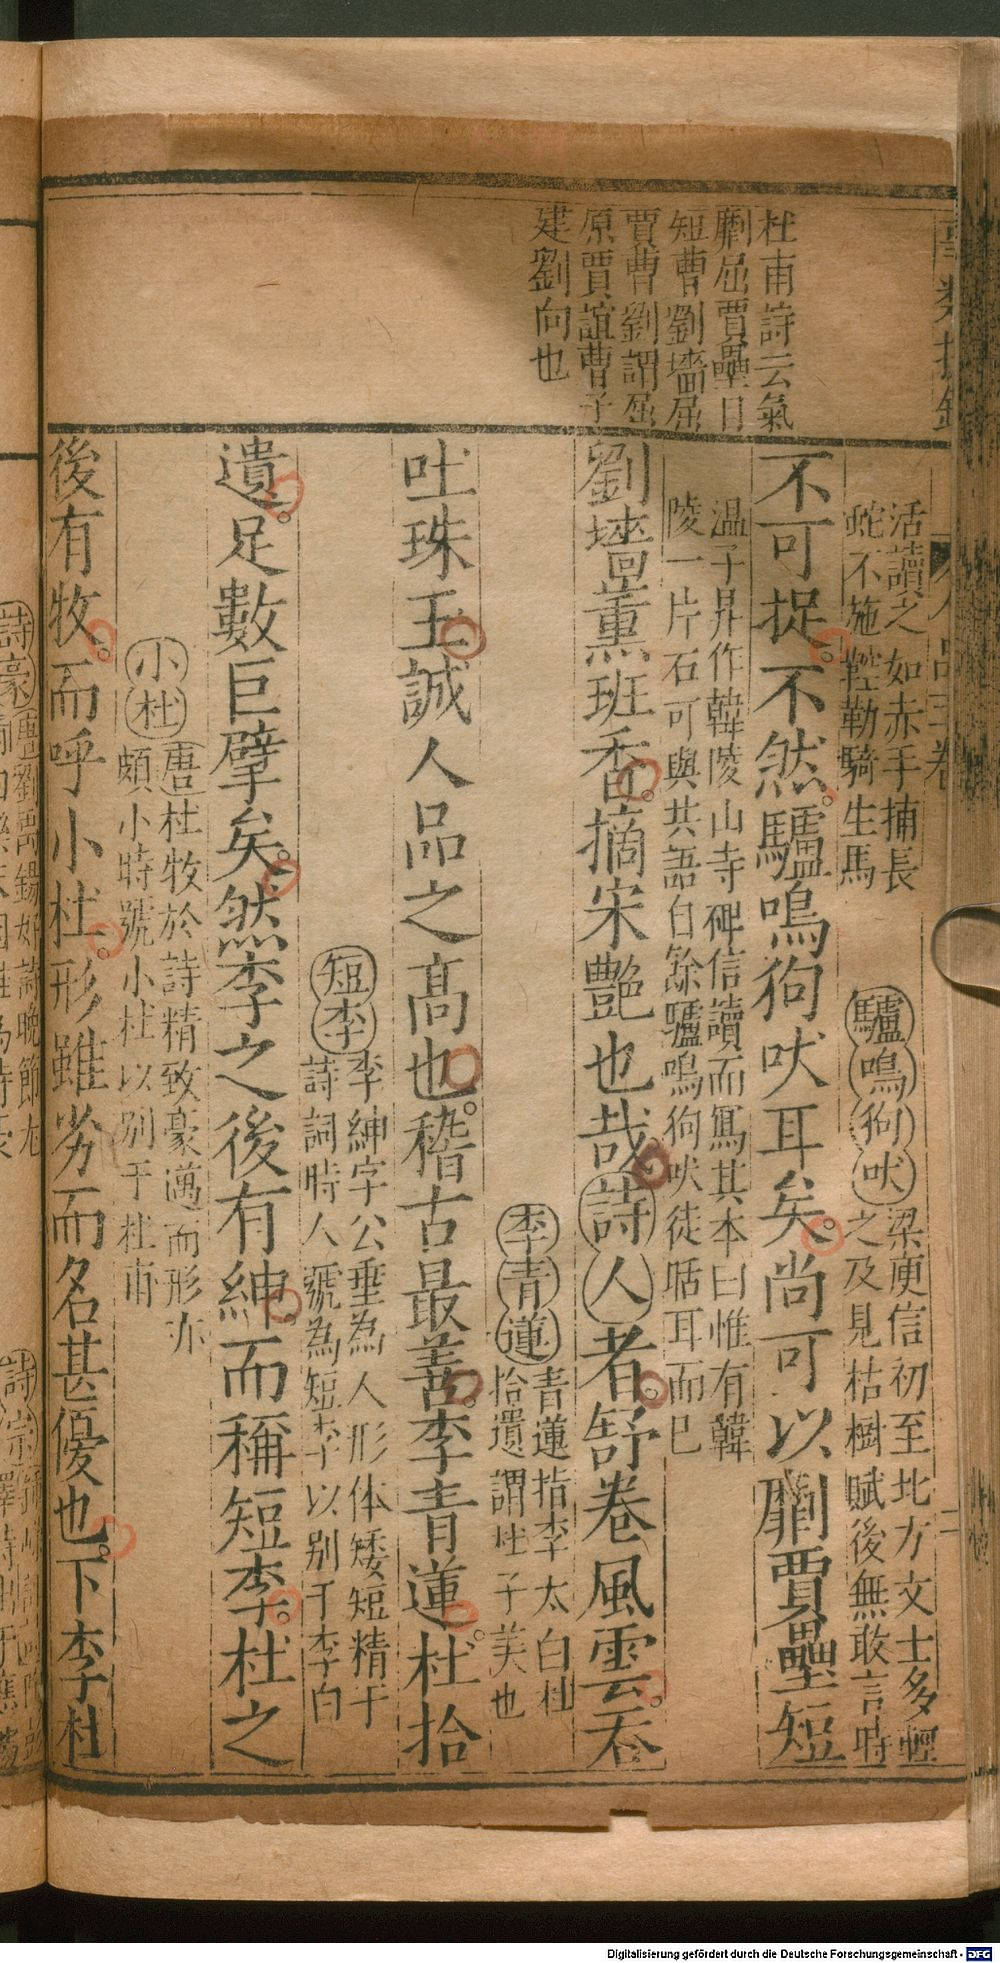 杜甫詩云氣
劘屈賈壘目
短曹劉墻屈
賈曹劉謂屈
原賈誼曹子
建劉向也
活讀之如赤手捕長
蛇不施鞚勒騎生馬
驢鳴狗吠
梁庾信初至北方文士多輕
之及見枯樹賦後無敢言時
不可捉不然驢鳴狗吠耳矣尚可以劘賈壘短
温子昇作韓陵山寺碑信讀而寫其本曰惟有韓
陵一片石可與共語自餘驢鳴狗吠徒聒耳而已
劉墻薰班香摘宋艷也哉詩人者舒卷風雲吞
李青蓮
青蓮指李太白杜
拾遺謂杜子美也
吐珠玉誠人品之高也稽古最善李青蓮杜拾
短李
李紳字公垂為人形体矮短精于
詩詞時人號為短李以别于李白
遺足數巨擘矣然李之後有紳而稱短李杜之
小杜
唐杜牧於詩精致豪邁而形亦
頗小時號小杜以别于杜甫
後有牧而呼小杜形雖劣而名甚優也下李杜
詩豪
唐劉禹錫好詩晚節尤
詩宗
Digitalisierung gefördert durch die Deutsche Forschungsgemeinschaft - DFG